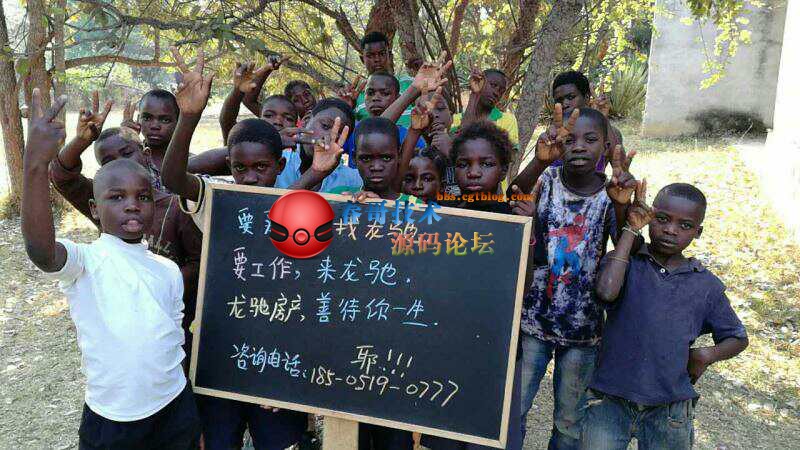 bbs.cgtblog.com
春哥技术
源码论坛
要 找龙驰
要工作,来龙驰.
龙驰房产,善待你一生.
耶!!!
咨询电话:185-0519-0777